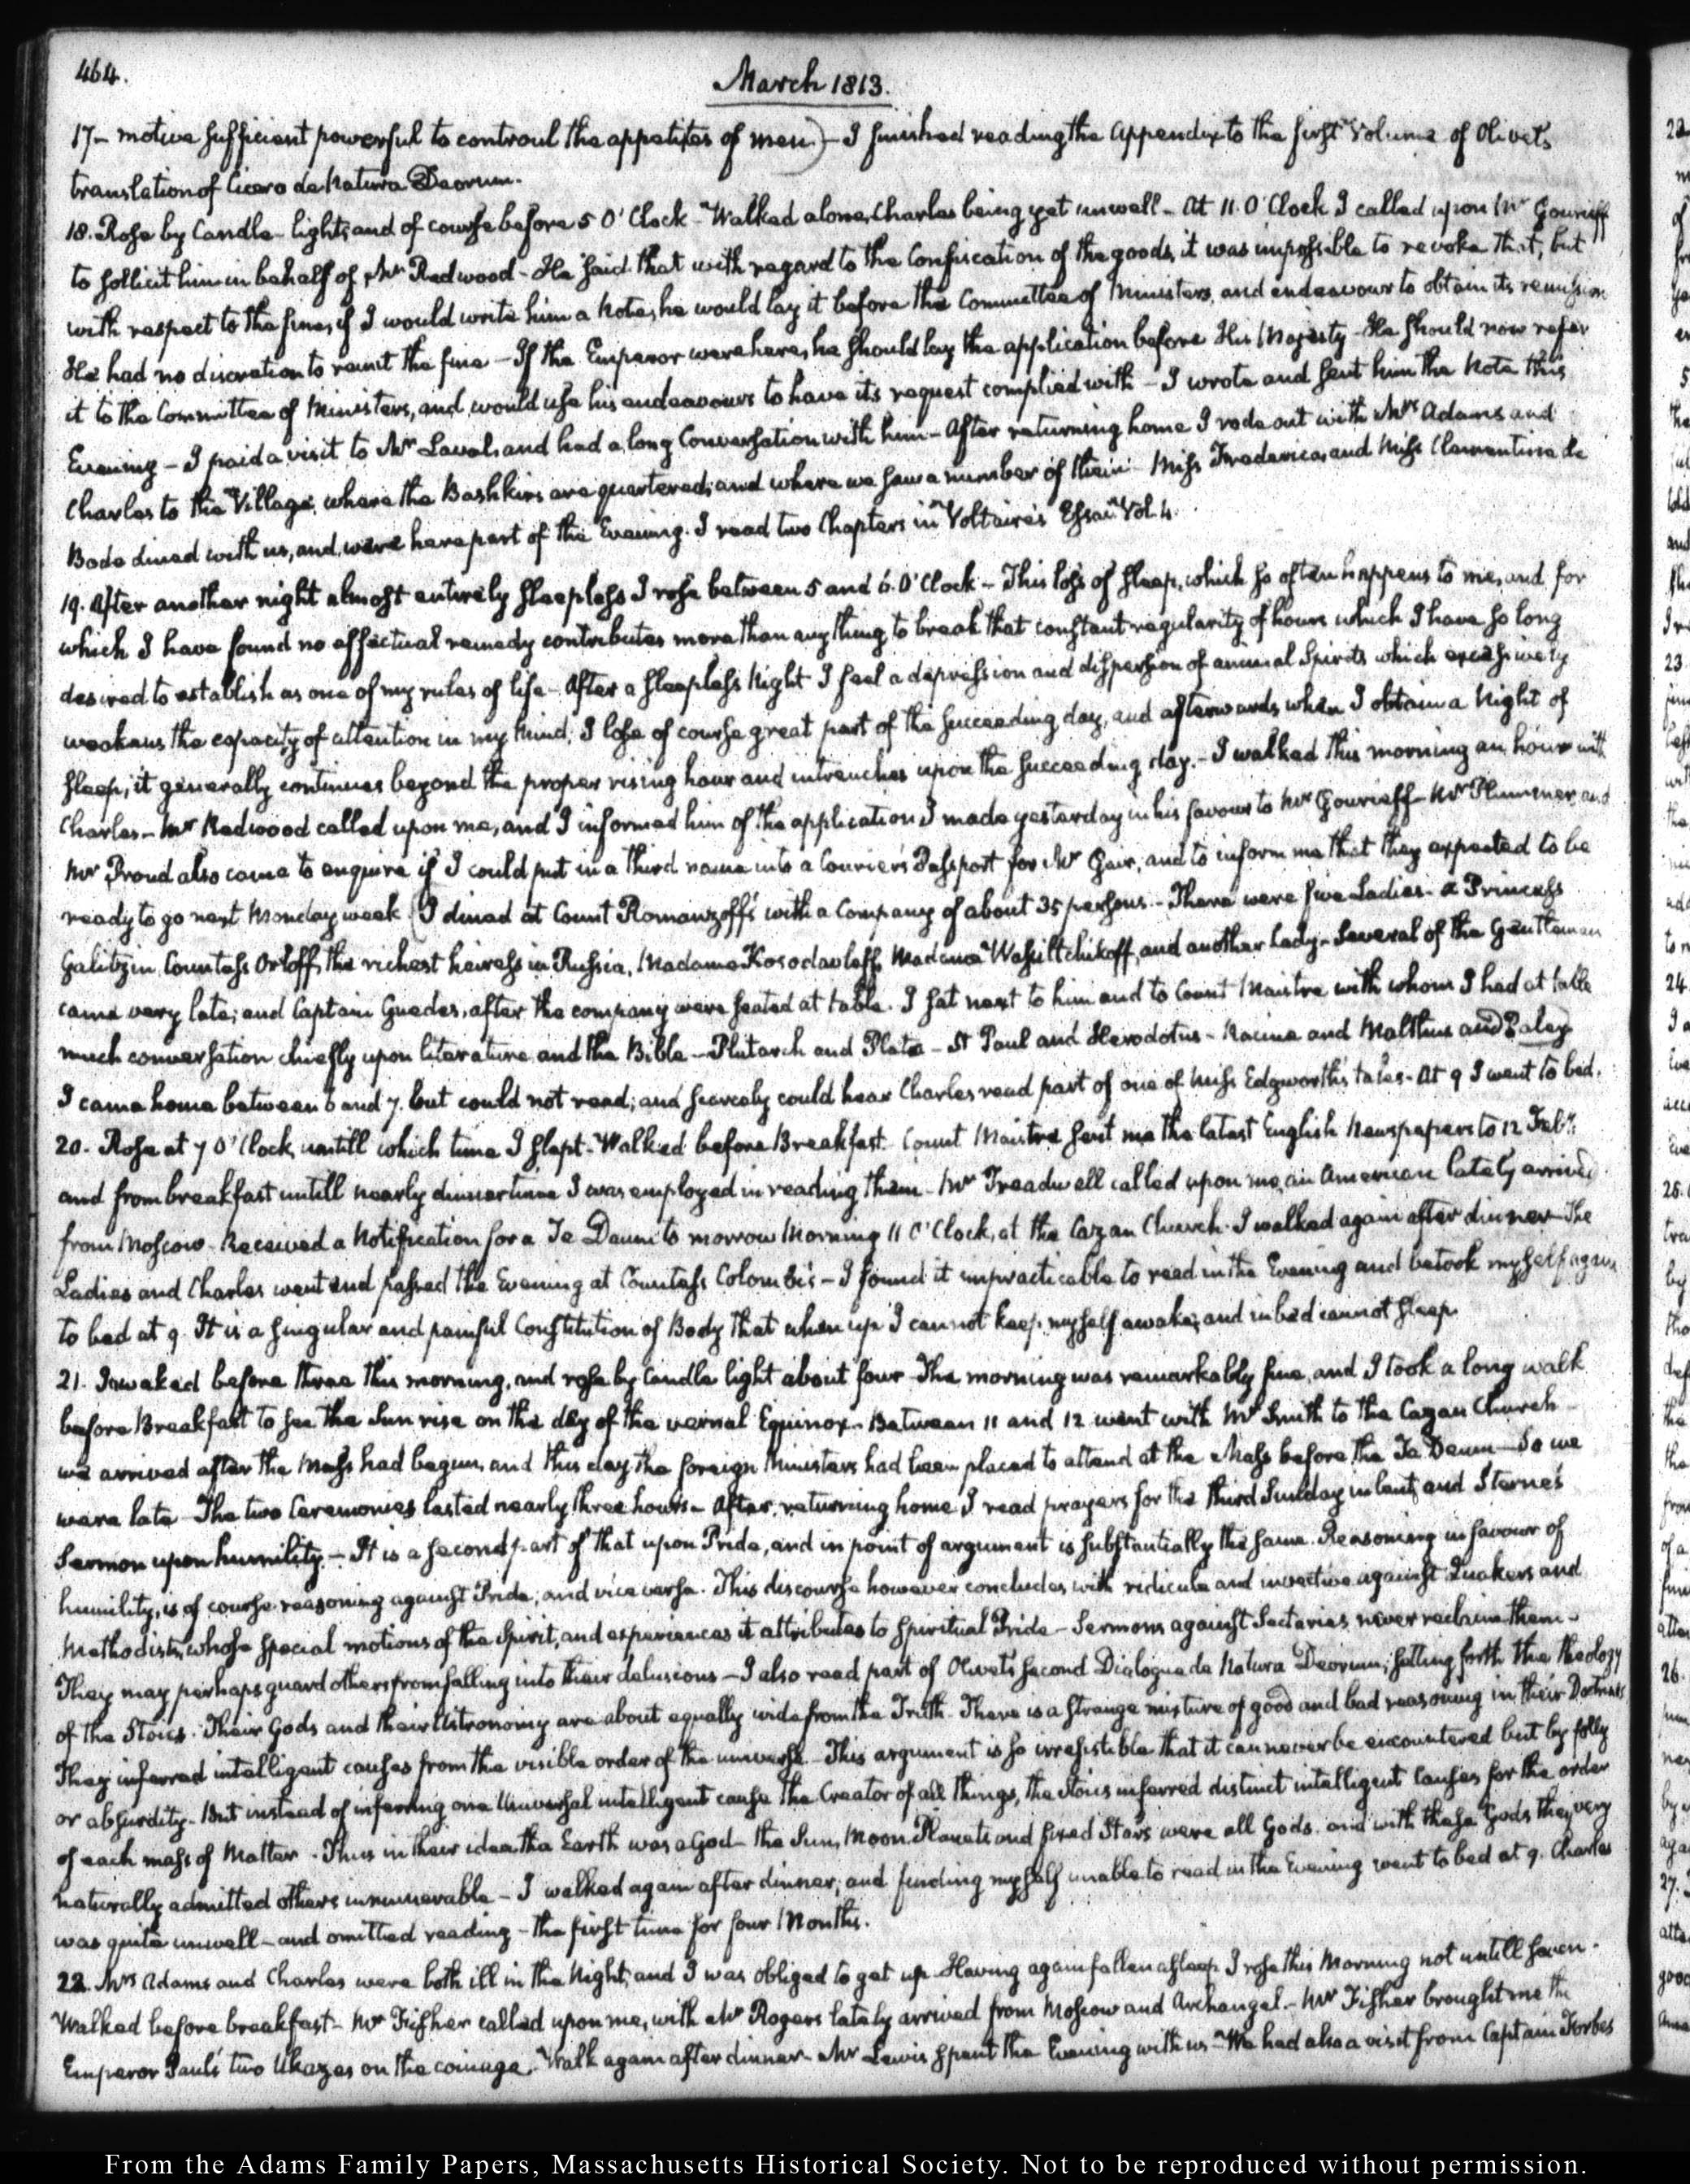 464.
March 1813.
17- motive sufficient powerful to controul the appetites of men.) - I finished reading the Appendix to the first Volume of Olivet's
translation of Cicero de Natura Deorum.
18. Rose by Candle-light, and of course before 5 O'Clock - Walked alone, Charles being yet unwell - At 11. O'Clock I called upon Mr Gourieff
to sollicit him in behalf of Mr Redwood - He said that with regard to the Confiscation of the goods, it was impossible to revoke that, but
with respect to the fine, if I would write him a Note, he would lay it before the Committee of Ministers, and endeavour to obtain its remission
He had no discretion to remit the fine - If the Emperor were here, he should lay the application before His Majesty - He should now refer
it to the Committee of Ministers, and would use his endeavours to have its request complied with - I wrote and sent him the Note this
Evening - I paid a visit to Mr Laval, and had a long Conversation with him - After returning home I rode out with Mrs Adams and
Charles to the Village, where the Bashkirs are quartered; and where we saw a number of them - Miss Frederica, and Miss Clementina de
Bode dined with us, and were here part of the Evening. I read two Chapters in Voltaire's Essai Vol. 4.
19. After another night almost entirely sleepless I rose between 5 and 6. O'Clock - This loss of sleep, which so often happens to me, and for
which I have found no effectual remedy contributes more than any thing to break that constant regularity of hours which I have so long
desired to establish as one of my rules of life - After a sleepless Night I feel a depression and dispersion of animal Spirits which excessively
weakens the capacity of attention in my Mind; I lose of course great part of the succeeding day, and afterwards when I obtain a Night of
sleep, it generally continues beyond the proper rising hour and intrenches upon the succeeding day. - I walked this morning an hour with
Charles - Mr Redwood called upon me, and I informed him of the application I made yesterday in his favour to Mr Gourieff - Mr Plummer and
Mr Proud also came to enquire if I could put in a third name into a Courier's Passport for Mr Gair, and to inform me that they expected to be
ready to go next Monday week (I dined at Count Romanzoff's with a Company of about 35 persons. - There were five Ladies - a Princess
Galitzin, Countess Orloff, the richest heiress in Russia, Madame Kosodavloff, Madame Wassiltchikoff, and another Lady - Several of the Gentlemen
came very late; and Captain Guedes, after the company were seated at table. I sat next to him and to Count Maistre with whom I had at table
much conversation chiefly upon literature, and the Bible - Plutarch and Plato - St Paul and Herodotus - Racine and Malthus and Paley
I came home between 6 and 7. but could not read; and scarcely could hear Charles read part of one of Miss Edgworth's tales - At 9 I went to bed.
20. Rose at 7 O'Clock, untill which time I slept - Walked before Breakfast. Count Maistre sent me the latest English Newspapers to 12 Feby:
and from breakfast untill nearly dinner time I was employed in reading them - Mr Treadwell called upon me, an American lately arrived
from Moscow - Received a Notification for a Te Deum to morrow Morning 11 O'Clock, at the Cazan Church - I walked again after dinner - The
Ladies and Charles went and passed the Evening at Countess Colombi's - I found it impracticable to read in the Evening and betook myself again
to bed at 9. It is a singular and painful Constitution of Body that when up I cannot keep myself awake, and in bed cannot sleep.
21. I awaked before three this morning, and rose by Candle light about four - The morning was remarkably fine, and I took a long walk
before Breakfast to see the Sun rise on the day of the vernal Equinox - Between 11 and 12 went with Mr Smith to the Cazan Church -
we arrived after the Mass had begun, and this day the foreign Ministers had been placed to attend at the Mass before the Te Deum - So we
were late - The two Ceremonies lasted nearly three hours - After returning home I read prayers for the third Sunday in lent, and Sterne's
Sermon upon humility. - It is a second part of that upon Pride, and in point of argument is substantially the same. Reasoning in favour of
humility, is of course reasoning against Pride; and vice versa. This discourse however concludes with ridicule and invective against Quakers and
Methodists, whose special motions of the Spirit, and experiences it attributes to Spiritual Pride - Sermons against Sectaries never reclaim them -
They may perhaps guard others from falling into their delusions - I also read part of Olivet's second Dialogue de Natura Deorum; setting forth the theology
of the Stoics. Their Gods and their Astronomy are about equally wide from the Truth - There is a strange mixture of good and bad reasoning in their Doctrines
They inferred intelligent causes from the visible order of the universe - This argument is so irresistible that it can never be encountered but by folly
or absurdity - But instead of inferring one Universal intelligent cause the Creator of all things, the Stoics inferred distinct intelligent causes for the order
of each mass of Matter - Thus in their idea the Earth was a God - the Sun, Moon, Planets and fixed Stars were all Gods, and with these Gods they very
naturally admitted others innumerable - I walked again after dinner, and finding myself unable to read in the Evening went to bed at 9. Charles
was quite unwell - and omitted reading - the first time for four Months.
22. Mrs Adams and Charles were both ill in the Night, and I was obliged to get up - Having again fallen asleep I rose this Morning not untill seven -
Walked before breakfast - Mr Fisher called upon me, with Mr Rogers lately arrived from Moscow and Archangel. - Mr Fisher brought me the
Emperor Paul's two Ukazes on the coinage. Walk again after dinner - Mr Lewis spent the Evening with us - We had also a visit from Captain Forbes
From the Adams Family Papers, Massachusetts Historical Society. Not to be reproduced without permission.